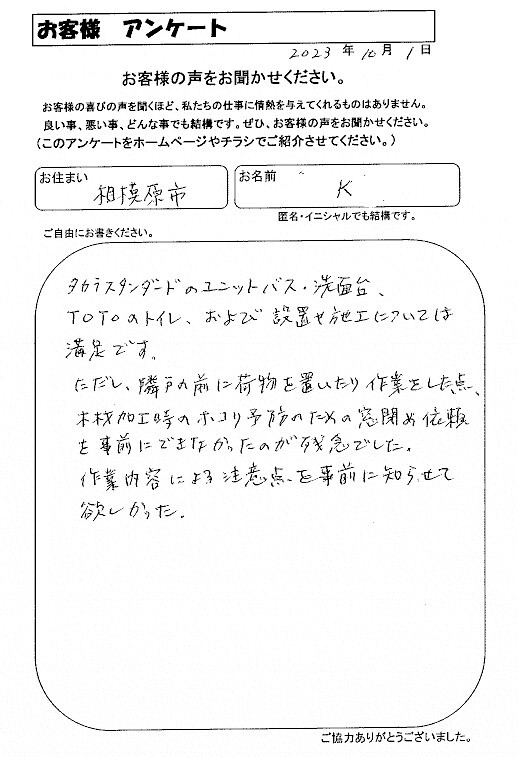 お客様 アンケート
2023 年 10 月 1 日
お客様の声をお聞かせください。
お客様の喜びの声を聞くほど、私たちの仕事に情熱を与えてくれるものはありません。
良い事、悪い事、どんな事でも結構です。ぜひ、お客様の声をお聞かせください。
(このアンケートをホームページやチラシでご紹介させてください。)
お住まい 相模原市
お名前 K
匿名・イニシャルでも結構です。
ご自由にお書きください。
タカラスタンダードのユニットバス・洗面台、
TOTOのトイレ、および設置や施工については
満足です。
ただし、隣戸の前に荷物を置いたり作業をした点、
木材加工時のホコリ予防のための窓閉め依頼
を事前にできなかったのが残念でした。
作業内容による注意点を事前に知らせて
欲しかった。
ご協力ありがとうございました。